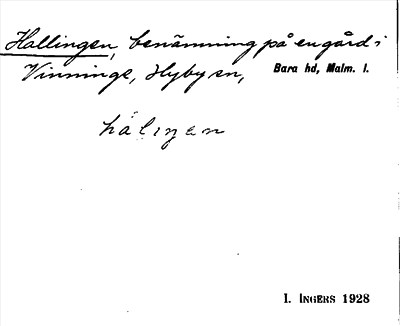 Hallingen, benämning på en gård i
Vinninge, Hyby sn, Bara hd, Malm. l.
hälıŋen
I. INGERS 1928